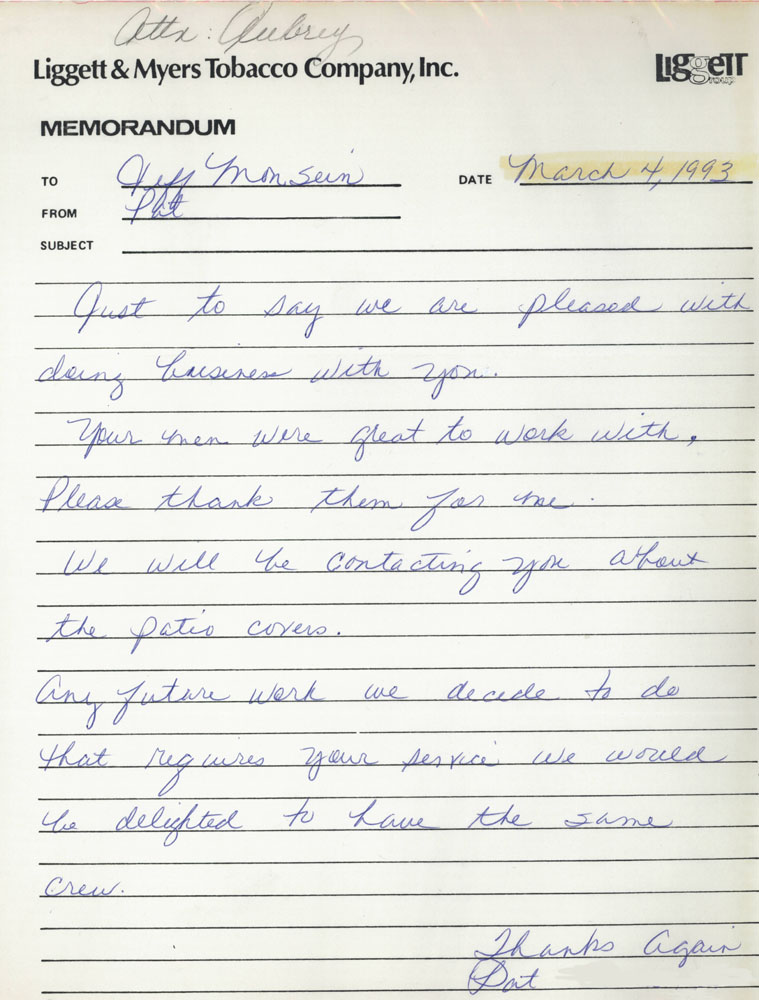 Attn: Aubrey
Liggett & Myers Tobacco Company, Inc.
Liggett
GROUP
MEMORANDUM
TO Jeff Monsein DATE March 4, 1993
FROM Pat
SUBJECT
Just to say we are pleased with
doing business with you.
Your men were great to work with,
Please thank them for me.
We will be contacting you about
the patio covers.
Any future work we decide to do
that requires your service we would
be delighted to have the same
crew.
Thanks Again
Pat